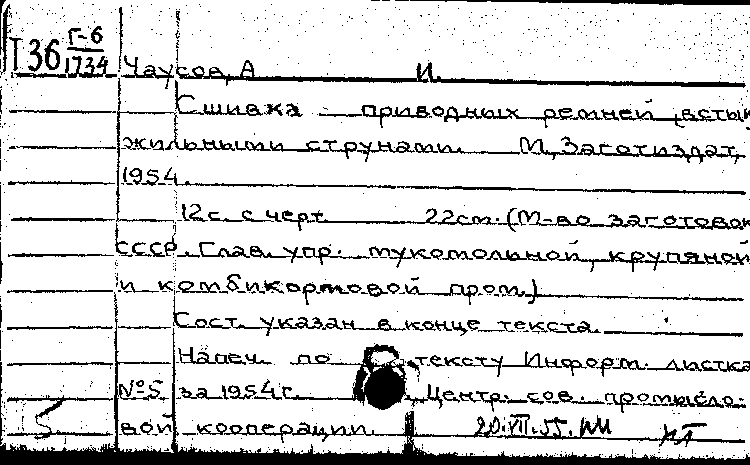 Т36 Г-6/1734 Чаусов, А И.
Сшивка приводных ремней встык
жильными струнами. М., Заготиздат,
1954.
12 с. с черт. 22см. (М-во заготовок
СССР. Глав. упр. мукомольной, крупяной
и комбикормовой пром.)
Сост. указан в конце текста.
Напеч. по тексту Информ. листка
№5 за 1954г. Центр. сов. промысло-
вой кооперации. 20.VII.55.